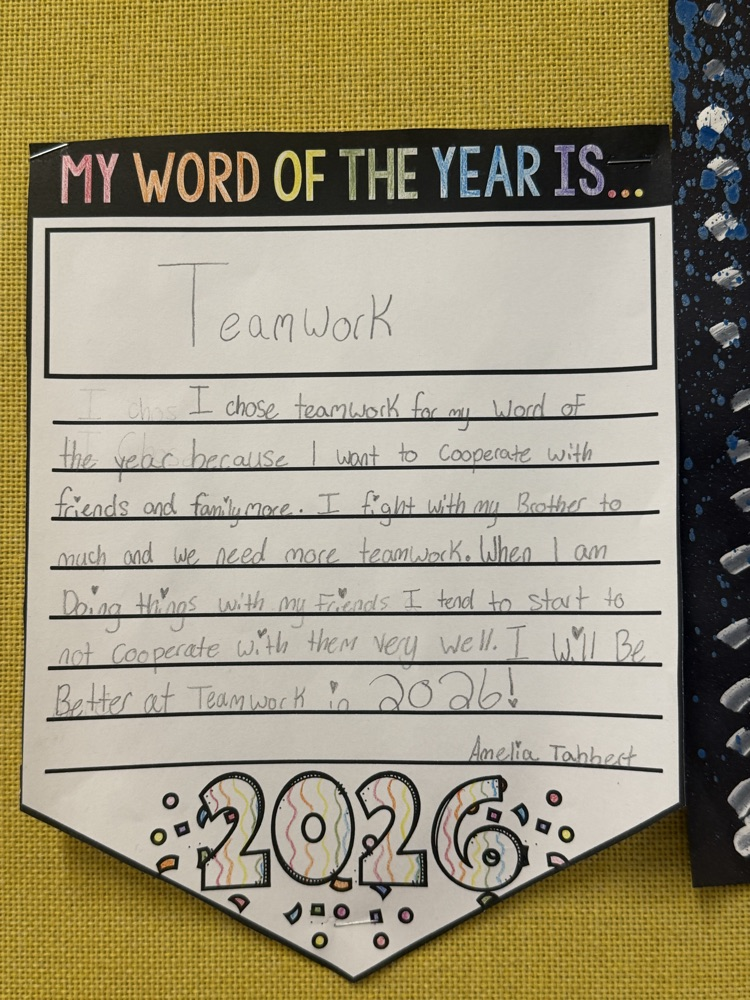 MY WORD OF THE YEAR IS...
Teamwork
I chose teamwork for my word of
the year because I want to cooperate with
friends and family more. I fight with my Brother to
much and we need more teamwork. When I am
Doing things with my Friends I tend to start to
not cooperate with them very well. I will Be
Better at Teamwork in 2026!
Amelia Tabbert
2026